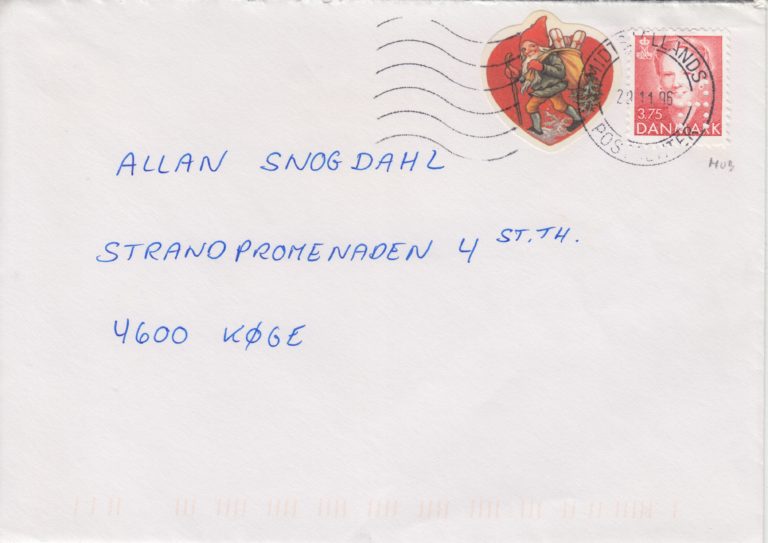 MIDTSJÆLLANDS
29.11.96
POSTCENTER
3.75
DANMARK
MUB
ALLAN SNOGDAHL
STRANDPROMENADEN 4 ST.TH.
4600 KØGE